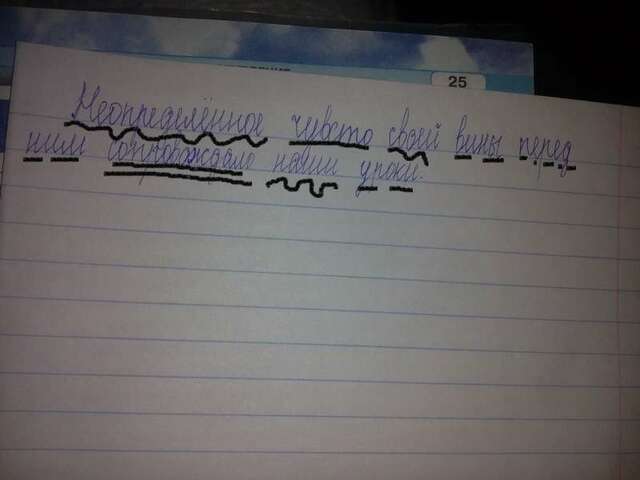 25
Неопределённое чувство своей вины перед
ним сопровождало наши уроки.